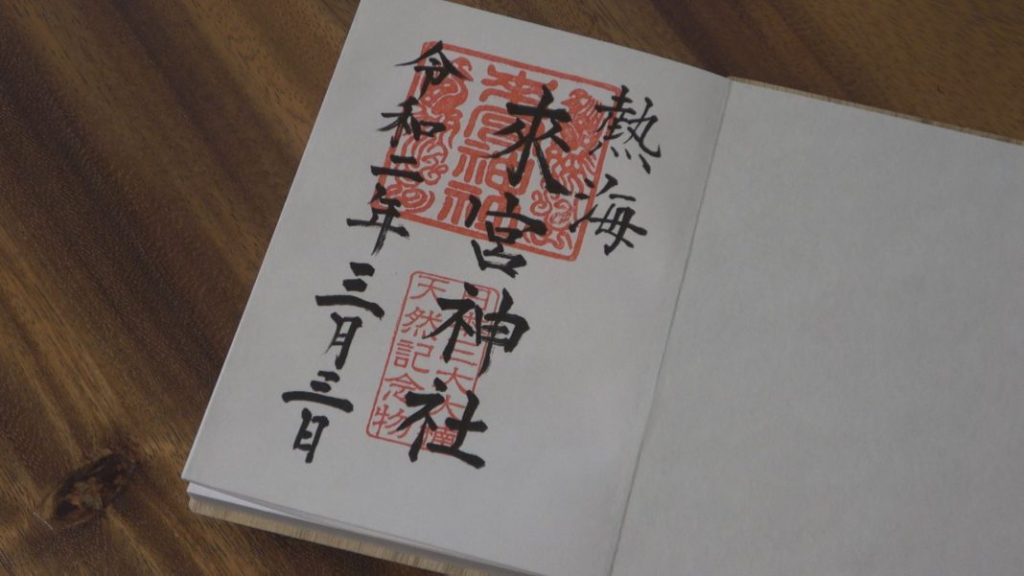 熱海
來宮神社
令和二年三月三日
來宮神社
天然記念物